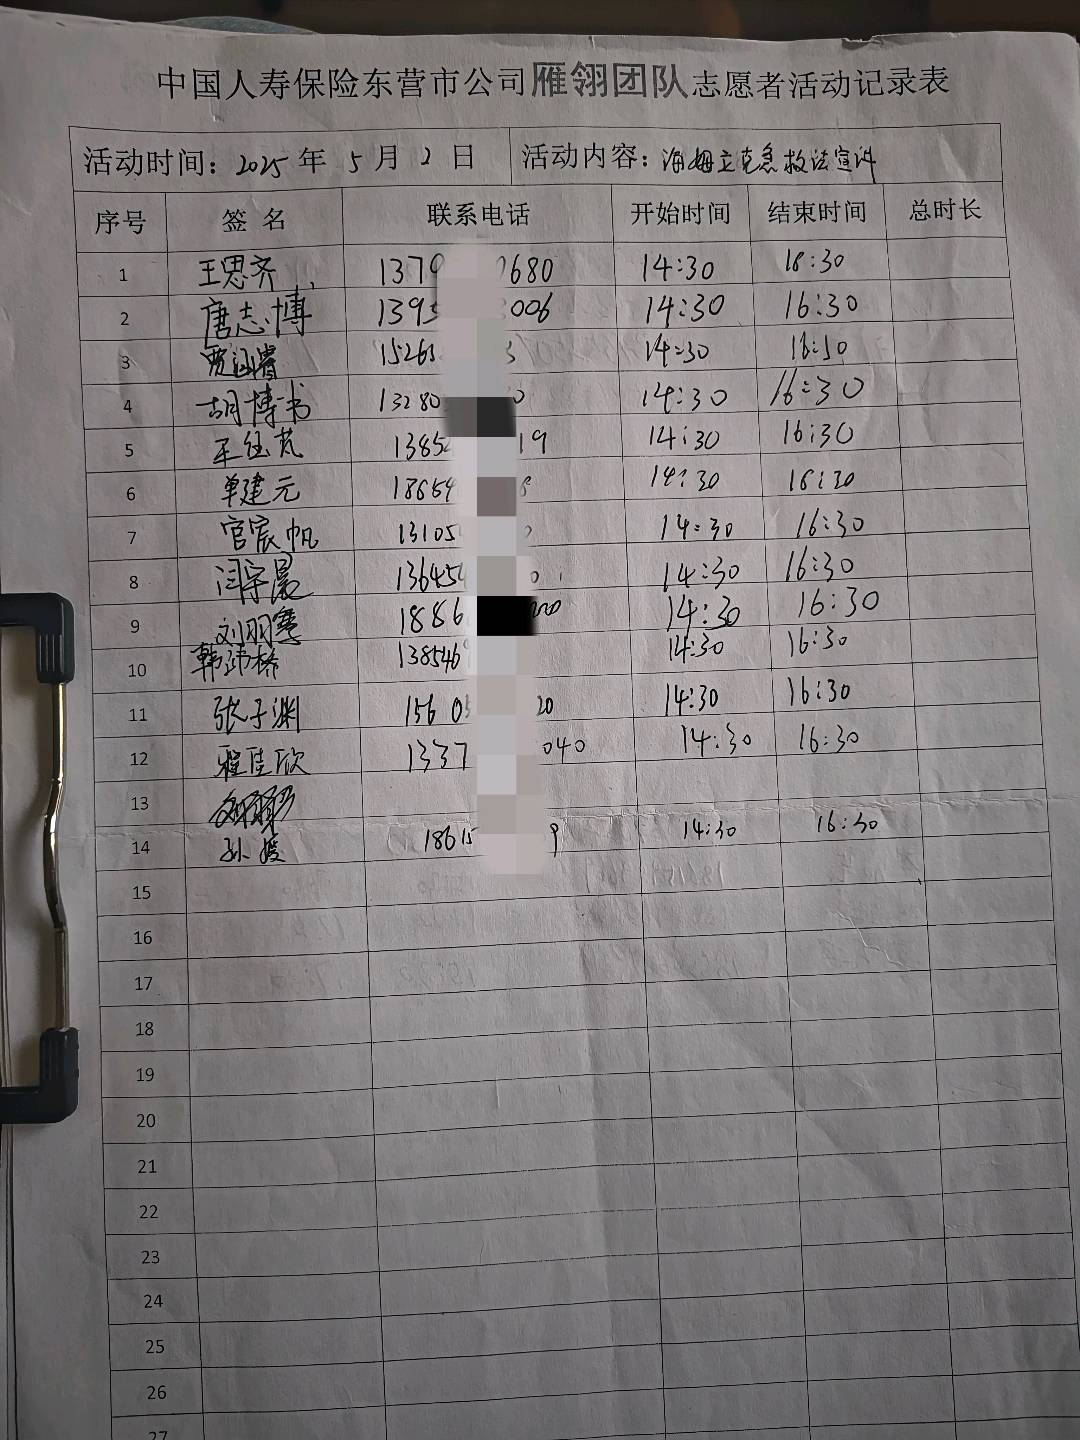 中国人寿保险东营市公司雁翎团队志愿者活动记录表
活动时间：2025年5月2日 活动内容：海姆立克急救法宣讲
序号 签名 联系电话 开始时间 结束时间 总时长
1 王思齐 1379 0680 14:30 18:30
2 唐志博 1395 006 14:30 16:30
3 贾涵睿 15265 3 14:30 16:30
4 胡博书 13280 0 14:30 16:30
5 1385 19 14:30 16:30
6 单建元 18654 8 14:30 18:30
7 官宸帆 13105 14:30 16:30
8 闫宇晨 136454 0 14:30 16:30
9 刘羽骞 1886 00 14:30 16:30
10 韩沛桥 138546 14:30 16:30
11 张子渊 156 05 20 14:30 16:30
12 程佳欣 1337 040 14:30 16:30
13
14 孙媛 18615 9 14:30 16:30
15
16
17
18
19
20
21
22
23
24
25
26
27